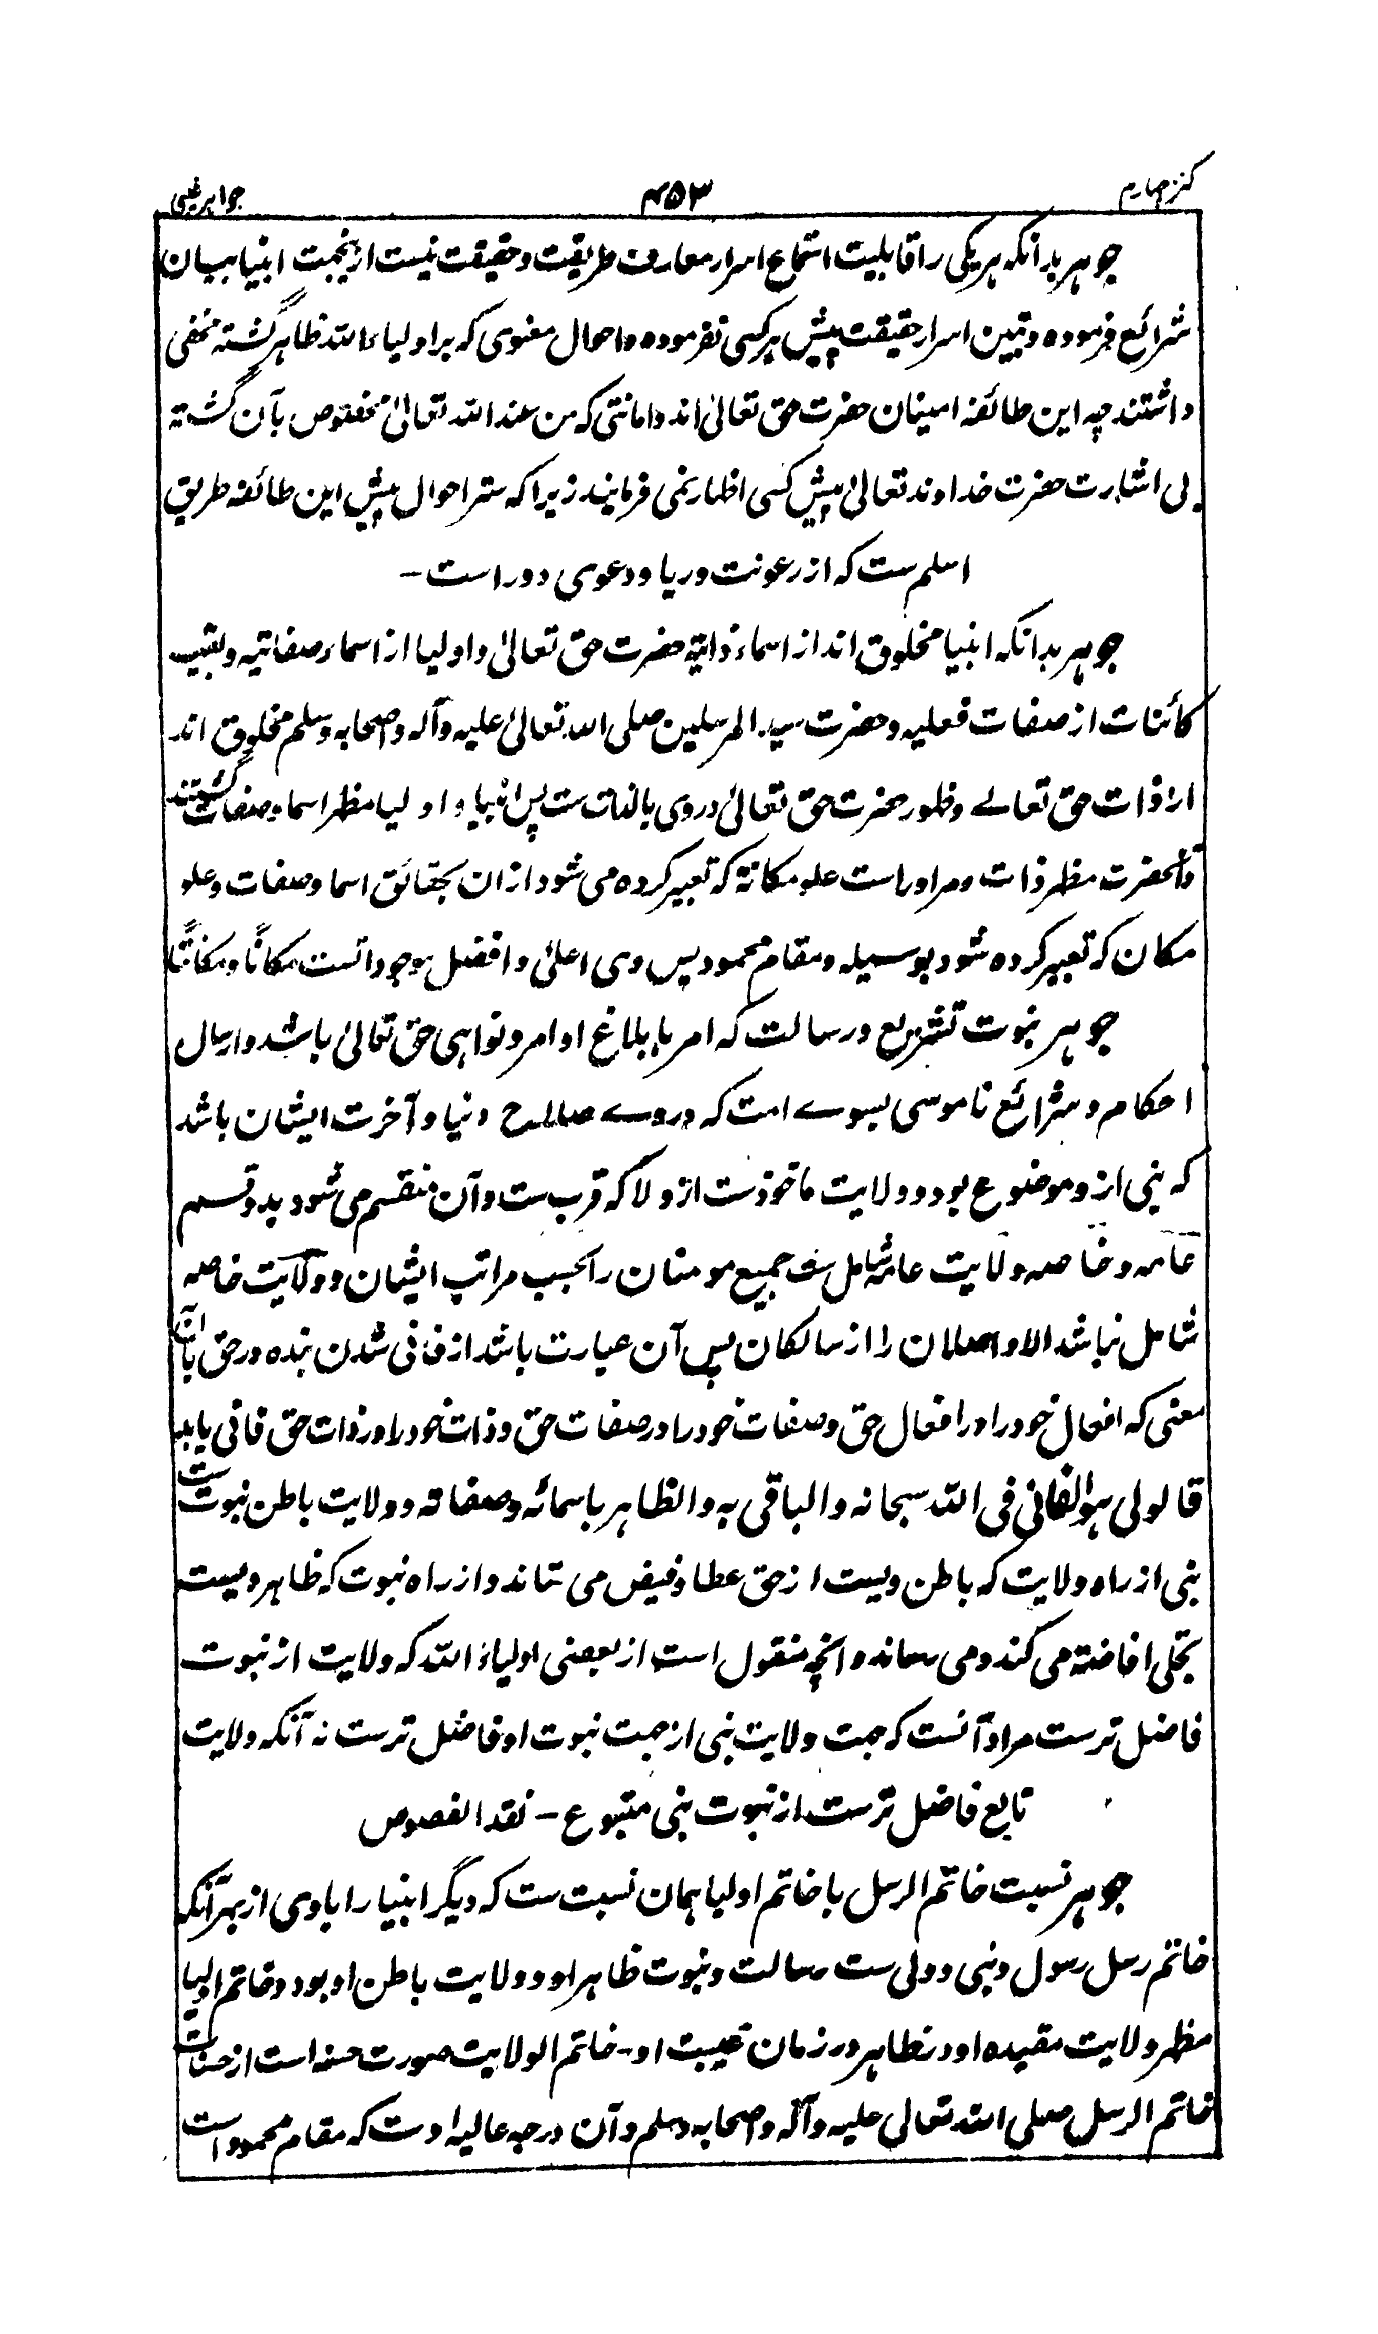 کنز چهارم ۴۵۳ جواهر غیبی
جوهر بدانکه هر یکی را قابلیت استماع اسرار معارف طریقت و حقیقت نیست ازینجهت انبیا بیان
شرائع فرموده و تبین اسرار حقیقت پیش هر کسی نفرموده و احوال معنوی که بر اولیاء الله ظاهر گشته مخفی
داشتند چه این طائفه امینان حضرت حق تعالیٰ اند و امانتی که من عند الله تعالیٰ مخصوص بآن گشته
بی اشارت حضرت خداوند تعالیٰ پیش کسی اظهار نمی فرمایند زیرا که ستر احوال پیش این طائفه طریق
اسلم ست که از رعونت و ریا و دعوی دور است –
جوهر بدانکه انبیا مخلوق اند از اسماء ذاتیه حضرت حق تعالیٰ و اولیا از اسماء صفاتیه و بقیه
کائنات از صفات فعلیه و حضرت سید المرسلین صلی الله تعالیٰ علیه وآله و صحابه وسلم مخلوق اند
از ذات حق تعالے و ظهور حضرت حق تعالیٰ در وی بالذات ست پس انبیاء و اولیا مظهر اسماء و صفات گشتند
و آنحضرت مظهر ذات و مر او راست علو مکانة که تعبیر کرده می شود ازان بحقائق اسما و صفات و علو
مکان که تعبیر کرده شود بوسیله و مقام محمود پس وی اعلیٰ و افضل موجودات ست مکانًا و مکانتًا
جوهر نبوت تشریع و رسالت که امر بابلاغ اوامر و نواهی حق تعالیٰ باشد و ارسال
احکام و شرائع ناموسی بسوے امت که دروے صالح دنیا و آخرت ایشان باشد
که نبی ازو موضوع بود و ولایت ماخوذ ست از ولا که قرب ست و آن منقسم می شود بدو قسم
عامه و خاصه ولایت عامه شامل ست جمیع مومنان را بحسب مراتب ایشان و ولایت خاصه
شامل نباشد الا واصلان را از سالکان پس آن عبارت باشد از فانی شدن بنده در حق بآن
معنی که افعال خود را در افعال حق و صفات خود را در صفات حق و ذات خود را در ذات حق فانی یابد
فالولی هو الفانی فی الله سبحانه والباقی به والظاهر باسمائه وصفاته و ولایت باطن نبوت ست
نبی از راه ولایت که باطن ویست از حق عطا و فیض می ستاند و از راه نبوت که ظاهر ویست
تجلی افاضته می کند و می رساند و آنچه منقول است از بعضی اولیاء الله که ولایت از نبوت
فاضل ترست مراد آنست که جهت ولایت نبی از جهت نبوت او فاضل ترست نه آنکه ولایت
تابع فاضل ترست از نبوت نبی متبوع – نقد الفصوص
جوهر نسبت خاتم الرسل با خاتم اولیا همان نسبت ست که دیگر انبیا را با وی از بهر آنکه
خاتم رسل رسول و نبی و ولی ست رسالت و نبوت ظاهر او و ولایت باطن او بود و خاتم اولیا
مظهر ولایت مقیده او در ظاهر در زمان غیبت او – خاتم الولایت صورت حسنه است از حسنات
خاتم الرسل صلی الله تعالی علیه وآله و صحابه وسلم و آن درجه عالیه اوست که مقام محمود است